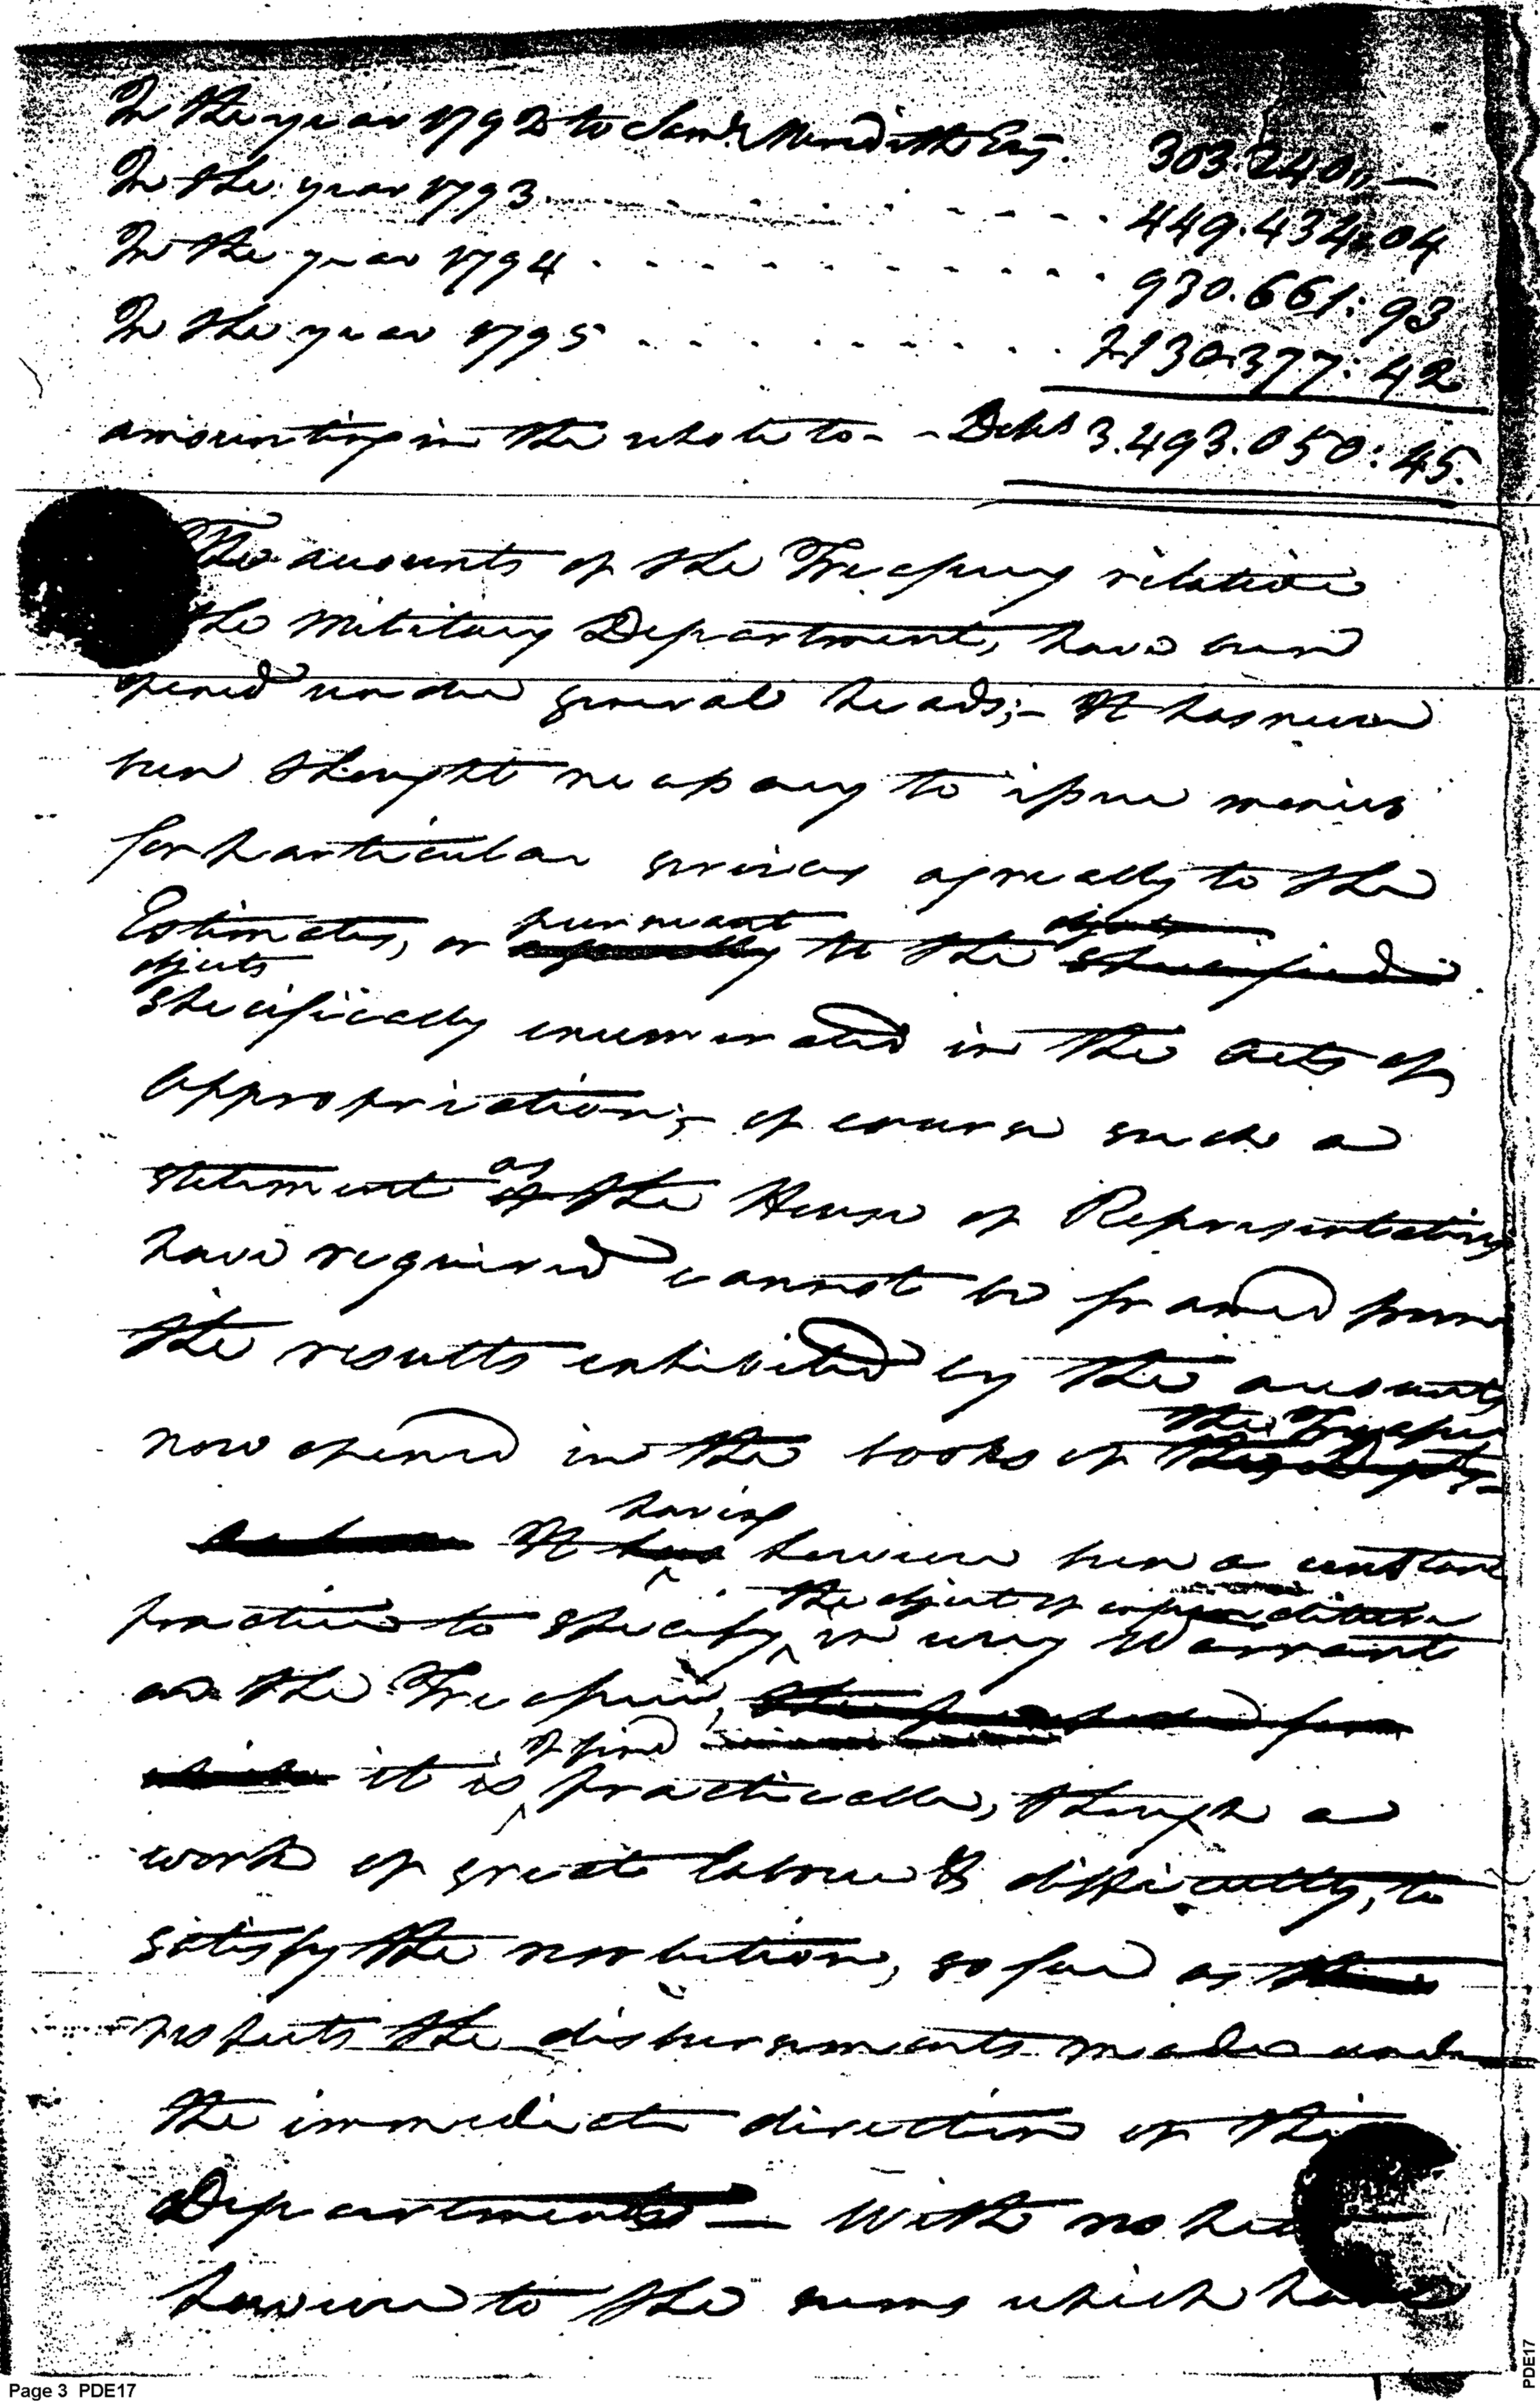 In the year 1792 to Saml. Meredith Esq. 303.240,,—
In the year 1793 . . . . . . . . 449.434:04
In the year 1794 . . . . . . . . . . . . 930.661:93
In the year 1795 . . . . . . . . . 130.377:42
amounting in the whole to - - Dolls 3.493.050:45.
The accounts of the Treasury relative
the Military Department, have been
opened under general heads;- It has never
been thought necessary to issue monies
for particular services agreeably to the
Estimates, or pursuant to the
objects
specifically enumerated in the Acts of
Appropriation;- of course such a
statement as the House of Representatives
have required cannot be framed from
the results exhibited by the accounts
now opened in the books of the Treasury
It having however been a constant
practice to specify the object of expenditure in every Warrant
on the Treasurer,
it is I find practicable, though a
work of great labour & difficulty, to
satisfy the resolution, so far as
respects the disbursements made under
the immediate direction of this
Department — With respect
however to the sums which have
Page 3 PDE17
PDE17